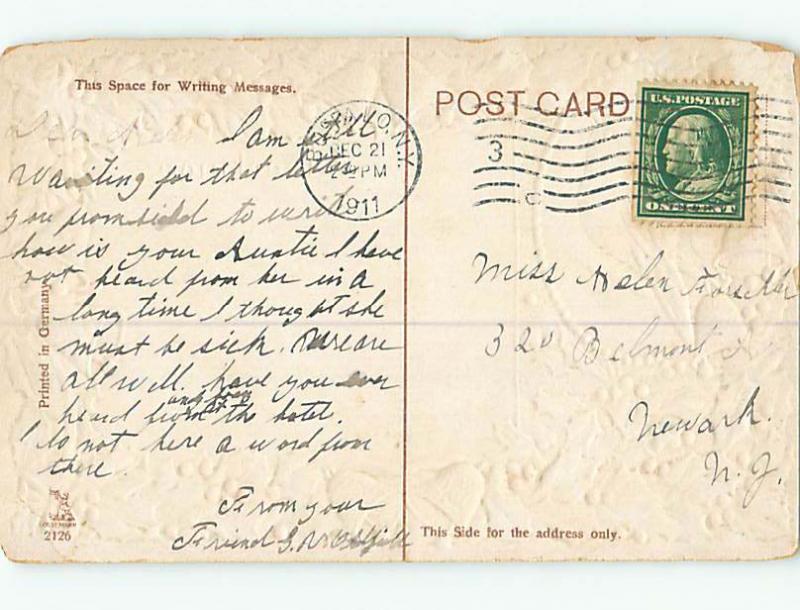 This Space for Writing Messages.
I am still
Waiting for that letter
you promised to write
how is your Auntie I have
not heard from her in a
long time I thought she
must be sick. We are
all well. have you ever
heard from the hotel.
I do not here a word from
there.
From your
Friend G.
Printed in Germany
2126
POST CARD
N.Y.
DEC 21
PM
1911
3
U.S. POSTAGE
ONE CENT
Miss Helen
320 Belmont
Newark.
N. J.
This Side for the address only.